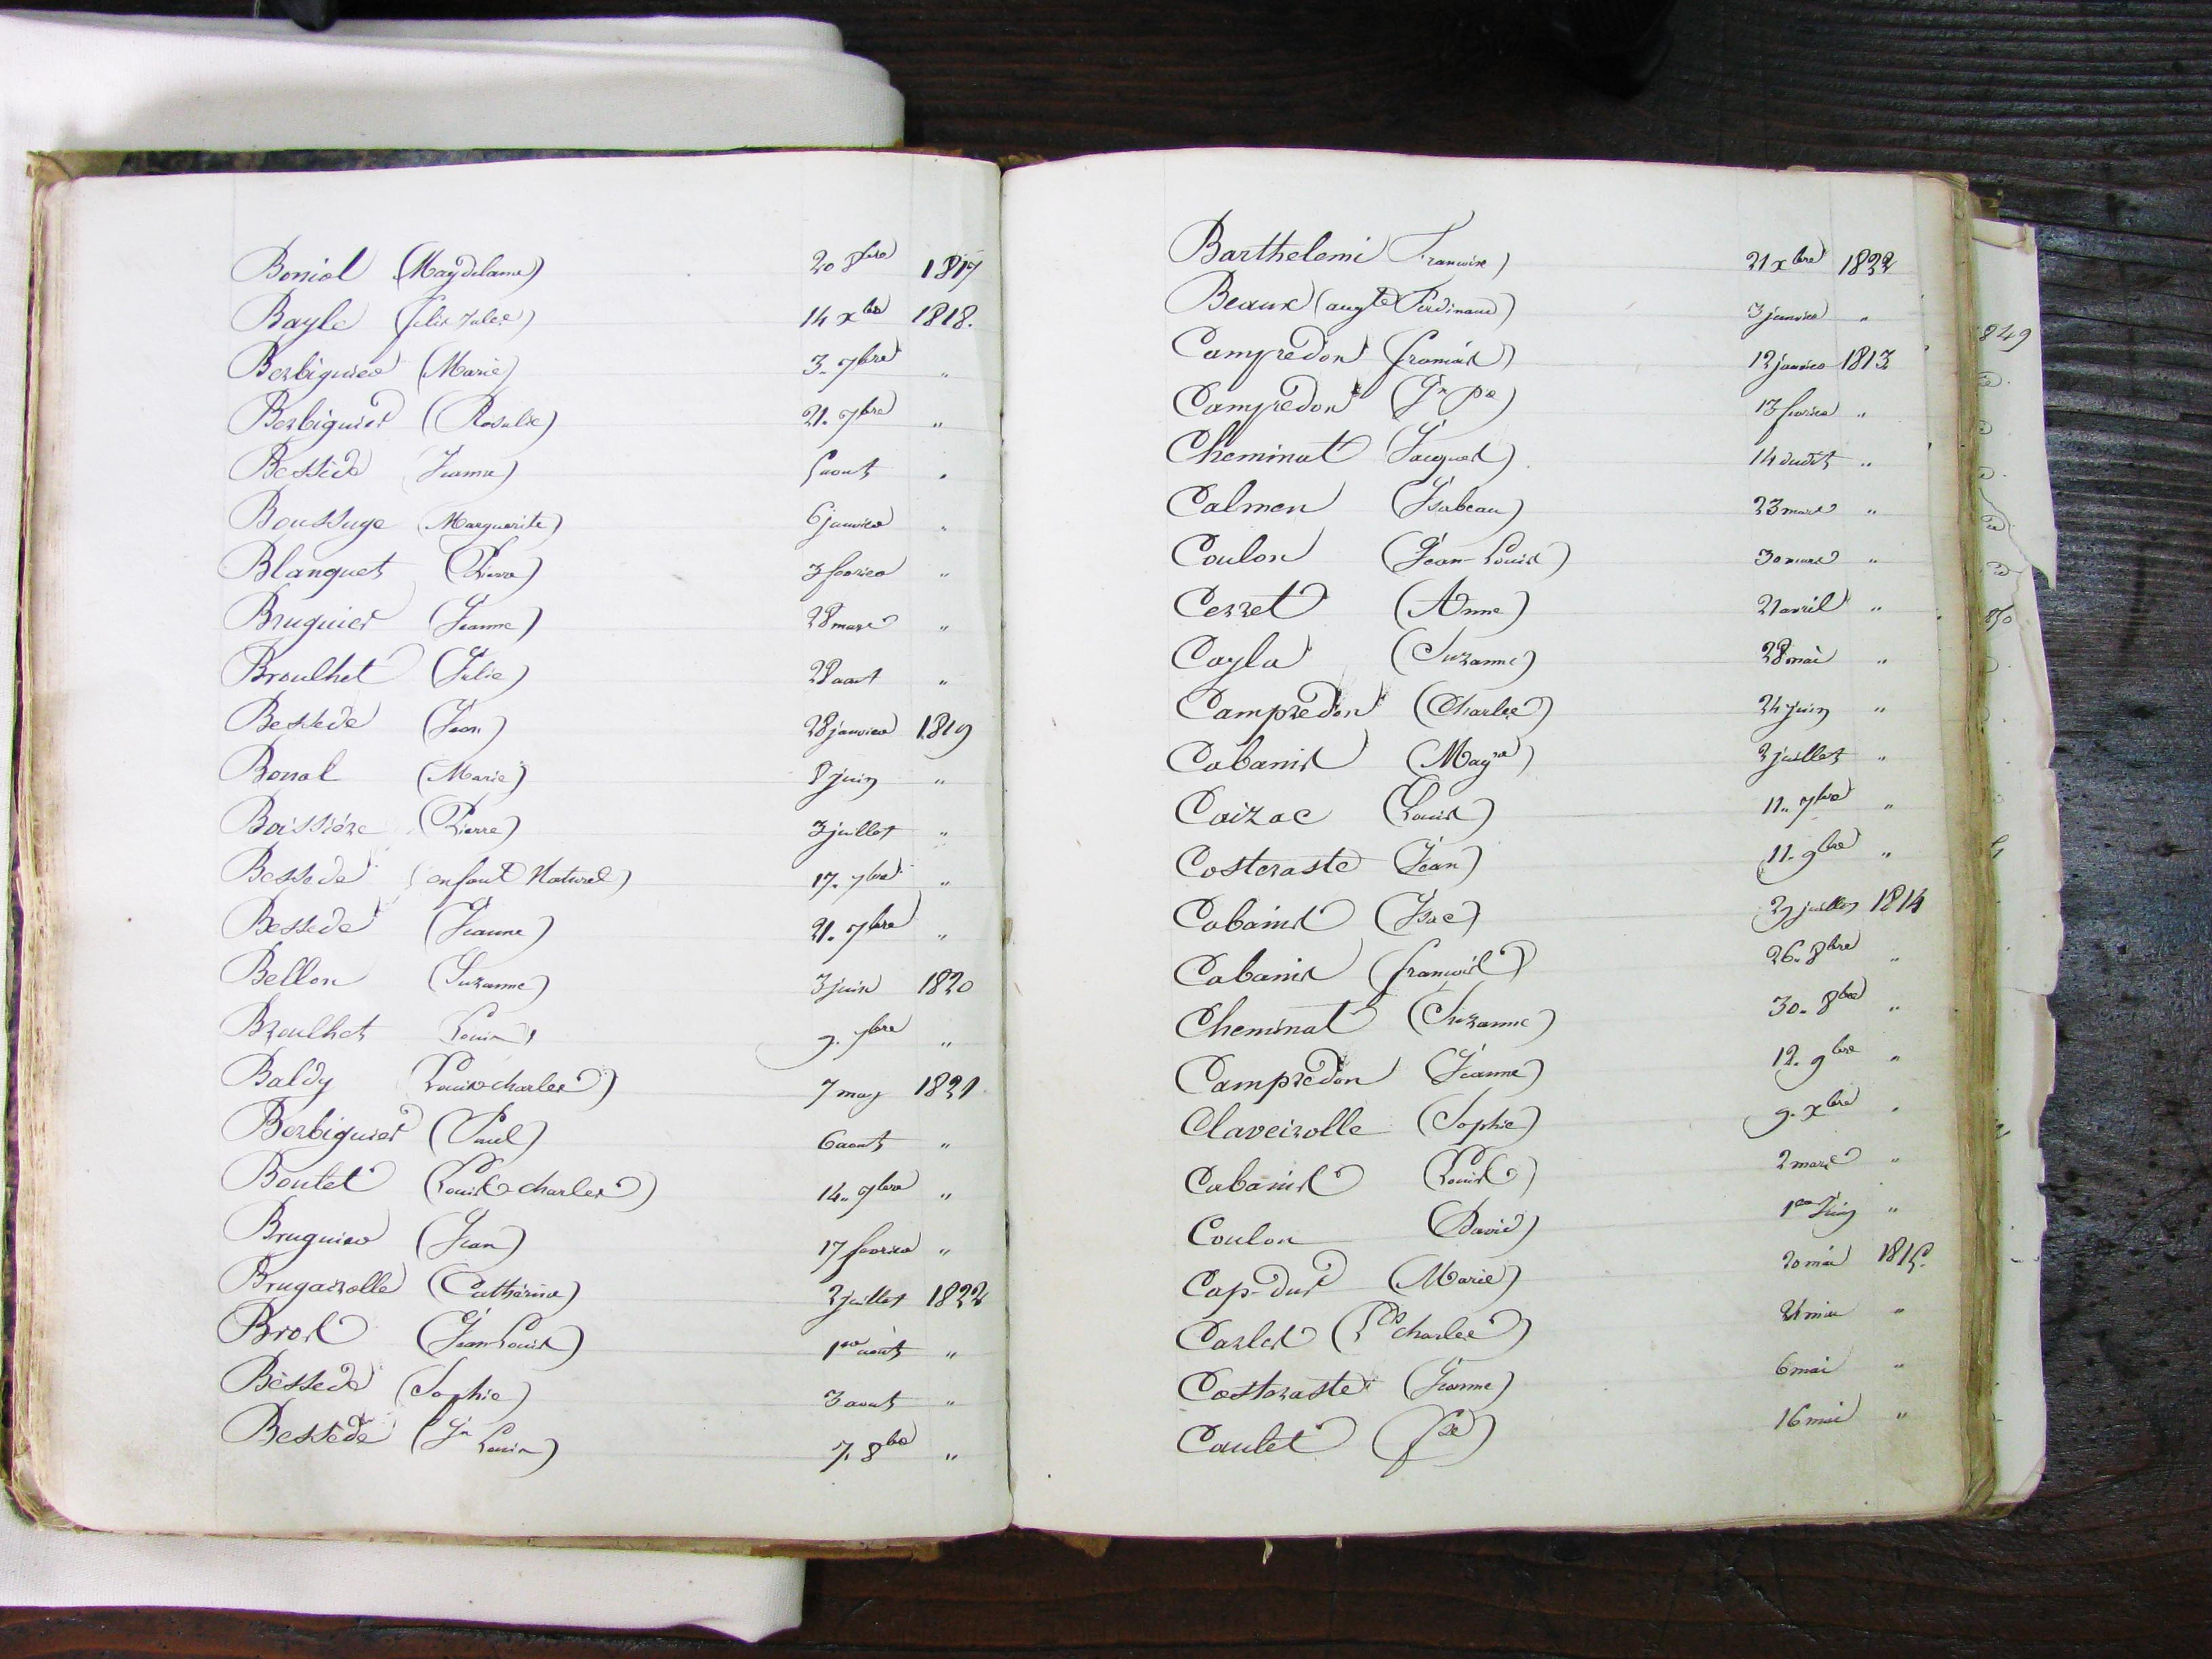 Boniol (Magdelaine) 20 8bre 1817
Bayle (felix Jules) 14 xbre 1818.
Berbiguier (Marie) 3. 7bre "
Berbiguier (Rosalie) 21. 7bre "
Bessède (Jeanne) 5 aout "
Boussuge (Marguerite) 6 janvier "
Blanquet (Pierre) 3 fevrier "
Bruguier (Jeanne) 28 mars "
Broulhet (Julie) 28 aout "
Bessede (Jean) 28 janvier 1819
Bonal (Marie) 8 juin "
Boissiére (Pierre) 3 juillet "
Bessede (enfant Naturel) 17. 7bre "
Bessede (Jeanne) 21. 7bre "
Bellon (Suzanne) 3 juin 1820
Broulhet (Louis) 9. 7bre "
Baldy (Louis charles) 7 may 1821
Berbiguier (Paul) 6 aout "
Boutet (Louis charles) 14. 7bre "
Bruguier (Jean) 17 fevrier "
Brugairolle (Catherine) 2 juillet 1822
Bros (Jean Louis) 1er aout "
Bessede (Sophie) 3 aout "
Bessède (Jn Louis) 7. 8bre "
Barthelemi (Francoise) 21 xbre 1822
Beaux (augte Ferdinand) 3 janvier "
Campredon (francois) 12 janvier 1813
Campredon (Jn Pre) 13 fevrier "
Cheminat (Jacques) 14 dudit "
Calmen (Isabeau) 23 mars "
Coulon (Jean-Louis) 30 mars "
Cerret (Anne) 21 avril "
Cayla (Suzanne) 28 mai "
Campredon (Charles) 24 juin "
Cabanis (Magne) 2 juillet "
Caizac (Louis) 11. 7bre "
Costeraste (Jean) 11. 9bre "
Cabanis (Isac) 29 juillet 1814
Cabanis (francois) 26. 8bre "
Cheminat (Suzanne) 30. 8bre "
Campredon (Jeanne) 12. 9bre "
Claveirolle (Sophie) 9. xbre "
Cabanis (Louis) 2 mars "
Coulon (David) 1er Juin "
Cap-dur (Marie) 20 mai 1815.
Carles (Ls charles) 21 mai "
Costeraste (Jeanne) 6 mai "
Caulet 16 mai "
849